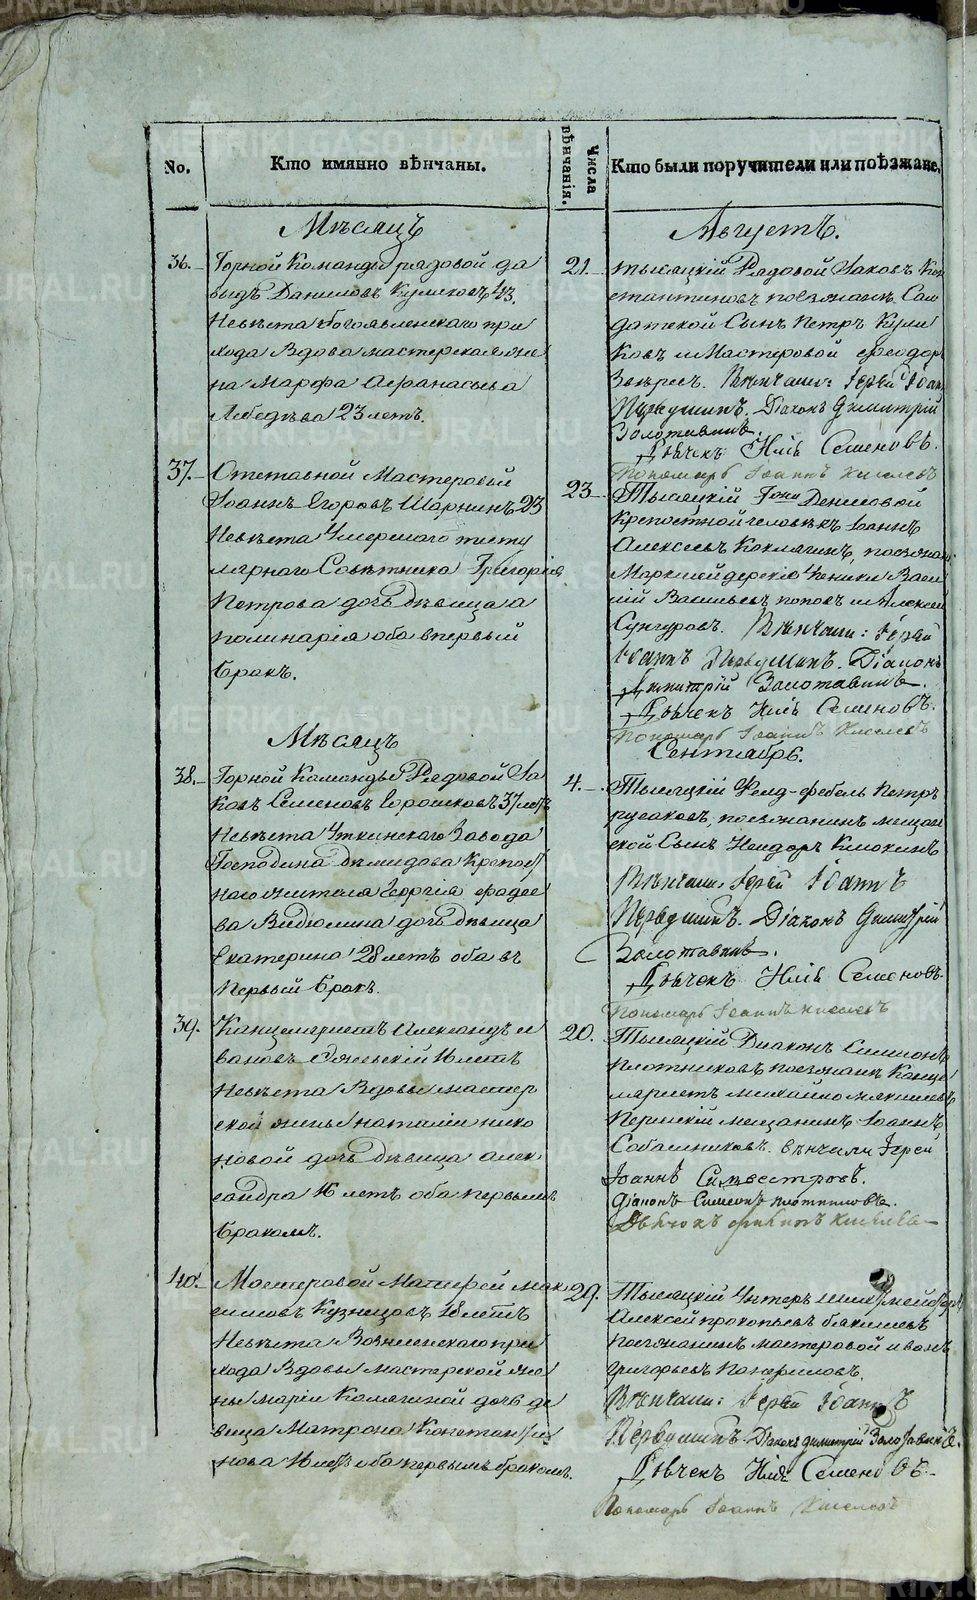 No.
Кто имянно вѣнчаны.
Числа вѣнчанія.
Кто были поручители или поѣзжане.
Мѣсяцъ
Августъ.
36.
Горной Команды рядовой да
выдъ Даниловъ Куликовъ 43.
Невѣста Богоявленскаго при
хода Вдова мастерская же
на Марфа Афанасьева
Лебедѣва 23 летъ.
21.
тысяцкій Рядовой Iаковъ Кон
стантиновъ поезжанъ Сол
датской Сынъ Петръ Кули
ковъ и Мастеровой Феодоръ
Вѣнчали: Iерей Iоаннъ
Первушинъ. Діаконъ Димитрій
Золотавинъ.
Дьячекъ Илiя Семеновъ.
Пономарь Iоаннъ Киселевъ
37.
Отставной Мастеровый
Iоаннъ Егоровъ Шарнинъ 23
Невѣста Умершаго титу
лярнаго Совѣтника Григорія
Петрова дочь дѣвица а
полинарія оба впервый
бракъ.
23.
Тысяцкій Гжи Демидовой
Крепостной человѣкъ Iоаннъ
Алексеевъ Коклягинъ, поезжане
Маркшейдерскіе Ученики Васи
лій Васильевъ поповъ и Алексей
Сунгуровъ. Вѣнчали: Iерей
Iоаннъ Первушинъ. Діаконъ
Димитрій Золотавинъ.
Дьячекъ Илiя Семеновъ.
Пономарь Iоаннъ Киселевъ
Мѣсяцъ
Сентябрь.
38.
Горной Команды Рядовой Iа
ковъ Семеновъ Сорошковъ 37 летъ
Невѣста Уткинскаго Завода
Господина Демидова Крепост
наго жителя Георгія Фадее
ва Видюлина дочь дѣвица
Екатерина 28 летъ оба въ
Первый бракъ.
4.
Тысяцкій Фелд-фебель Петръ
русаковъ, поезжанинъ мещан
ской Сынъ Исидоръ Клюкинъ
Вѣнчали: Iерей Iоаннъ
Первушинъ. Діаконъ Димитрій
Золотавинъ.
Дьячекъ Илiя Семеновъ.
Пономарь Iоаннъ Киселевъ
39.
Канцеляристъ Александръ и
вановъ
Невѣста Вдовы мастер
ской жены наталіи нико
новой дочь дѣвица алек
сандра 16 летъ оба первымъ
бракомъ.
20.
Тысяцкій Диаконъ Симионъ
Плотниковъ поезжанъ Канце
ляристъ михайло
Пермскій мещанинъ Iоаннъ
Собашниковъ. вѣнчили Iерей
Iоаннъ Силвестровъ.
Діаконъ Симеонъ плотниковъ.
40.
Мастеровой Матфей мак
симовъ Кузнецовъ 18 летъ
Невѣста Вознесенскаго при
хода Вдовы мастерской же
ны маріи Комягиной дочь дѣ
вица Матрона Константи
нова летъ оба первымъ бракомъ.
29.
Тысяцкій Унтеръ шихтмейстеръ
Алексей прокопьевъ
поезжанинъ мастеровой иванъ
григорьевъ Понариловъ.
Вѣнчали: Iерей Iоаннъ
Первушинъ. Діаконъ димитрій Золотавинъ.
Дьячекъ Илiя Семеновъ.
Пономарь Iоаннъ Киселевъ
METRIKI.GASO-URAL.RU